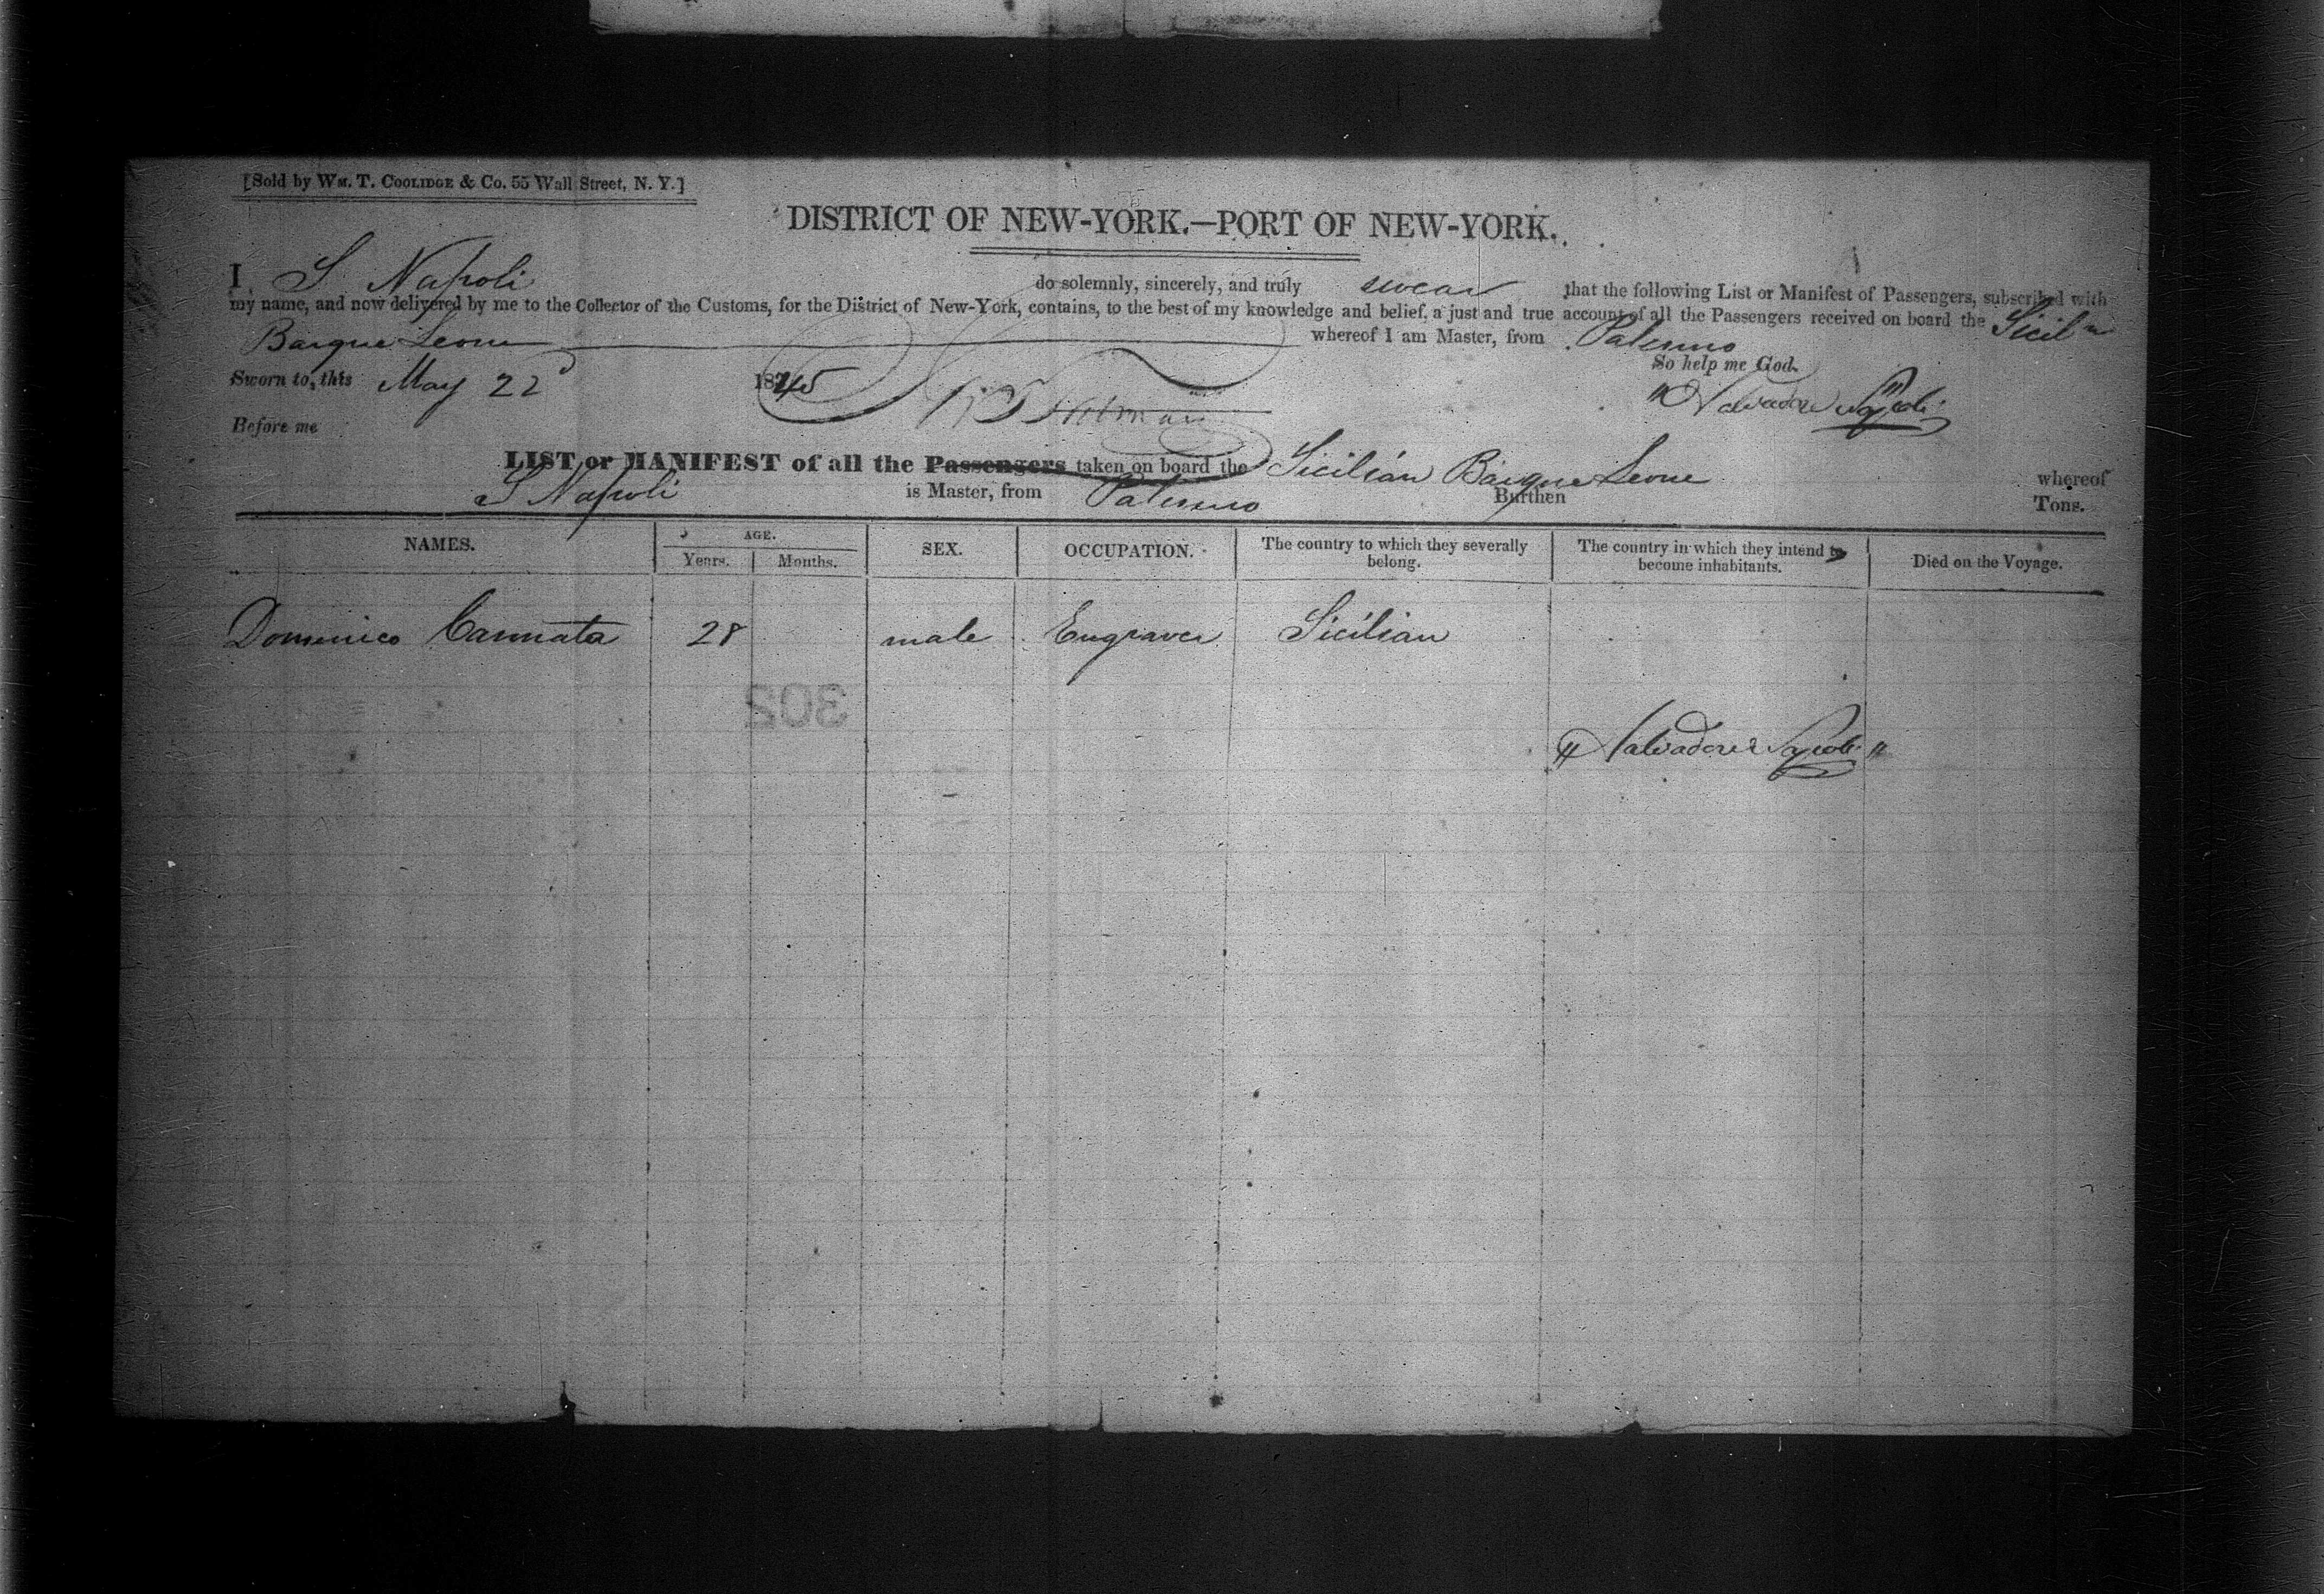 [Sold by WM. T. COOLIDGE & Co. 55 Wall Street, N. Y.]
DISTRICT OF NEW-YORK.—PORT OF NEW-YORK.
I S. Napoli do solemnly, sincerely, and truly swear that the following List or Manifest of Passengers, subscribed with
my name, and now delivered by me to the Collector of the Customs, for the District of New-York, contains, to the best of my knowledge and belief, a just and true account of all the Passengers received on board the Siciln
Barque Leone whereof I am Master, from Palermo
So help me God.
Sworn to, this May 22d 1845
Salvadore Napoli
Before me
LIST or MANIFEST of all the Passengers taken on board the Sicilian Barque Leone whereof
S Napoli is Master, from Palermo Burthen Tons.
NAMES. AGE. SEX. OCCUPATION. The country to which they severally belong. The country in which they intend to become inhabitants. Died on the Voyage.
Years. Months.
Domenico Cannata 28 male Engraver Sicilian
302
"Salvadore Napoli"